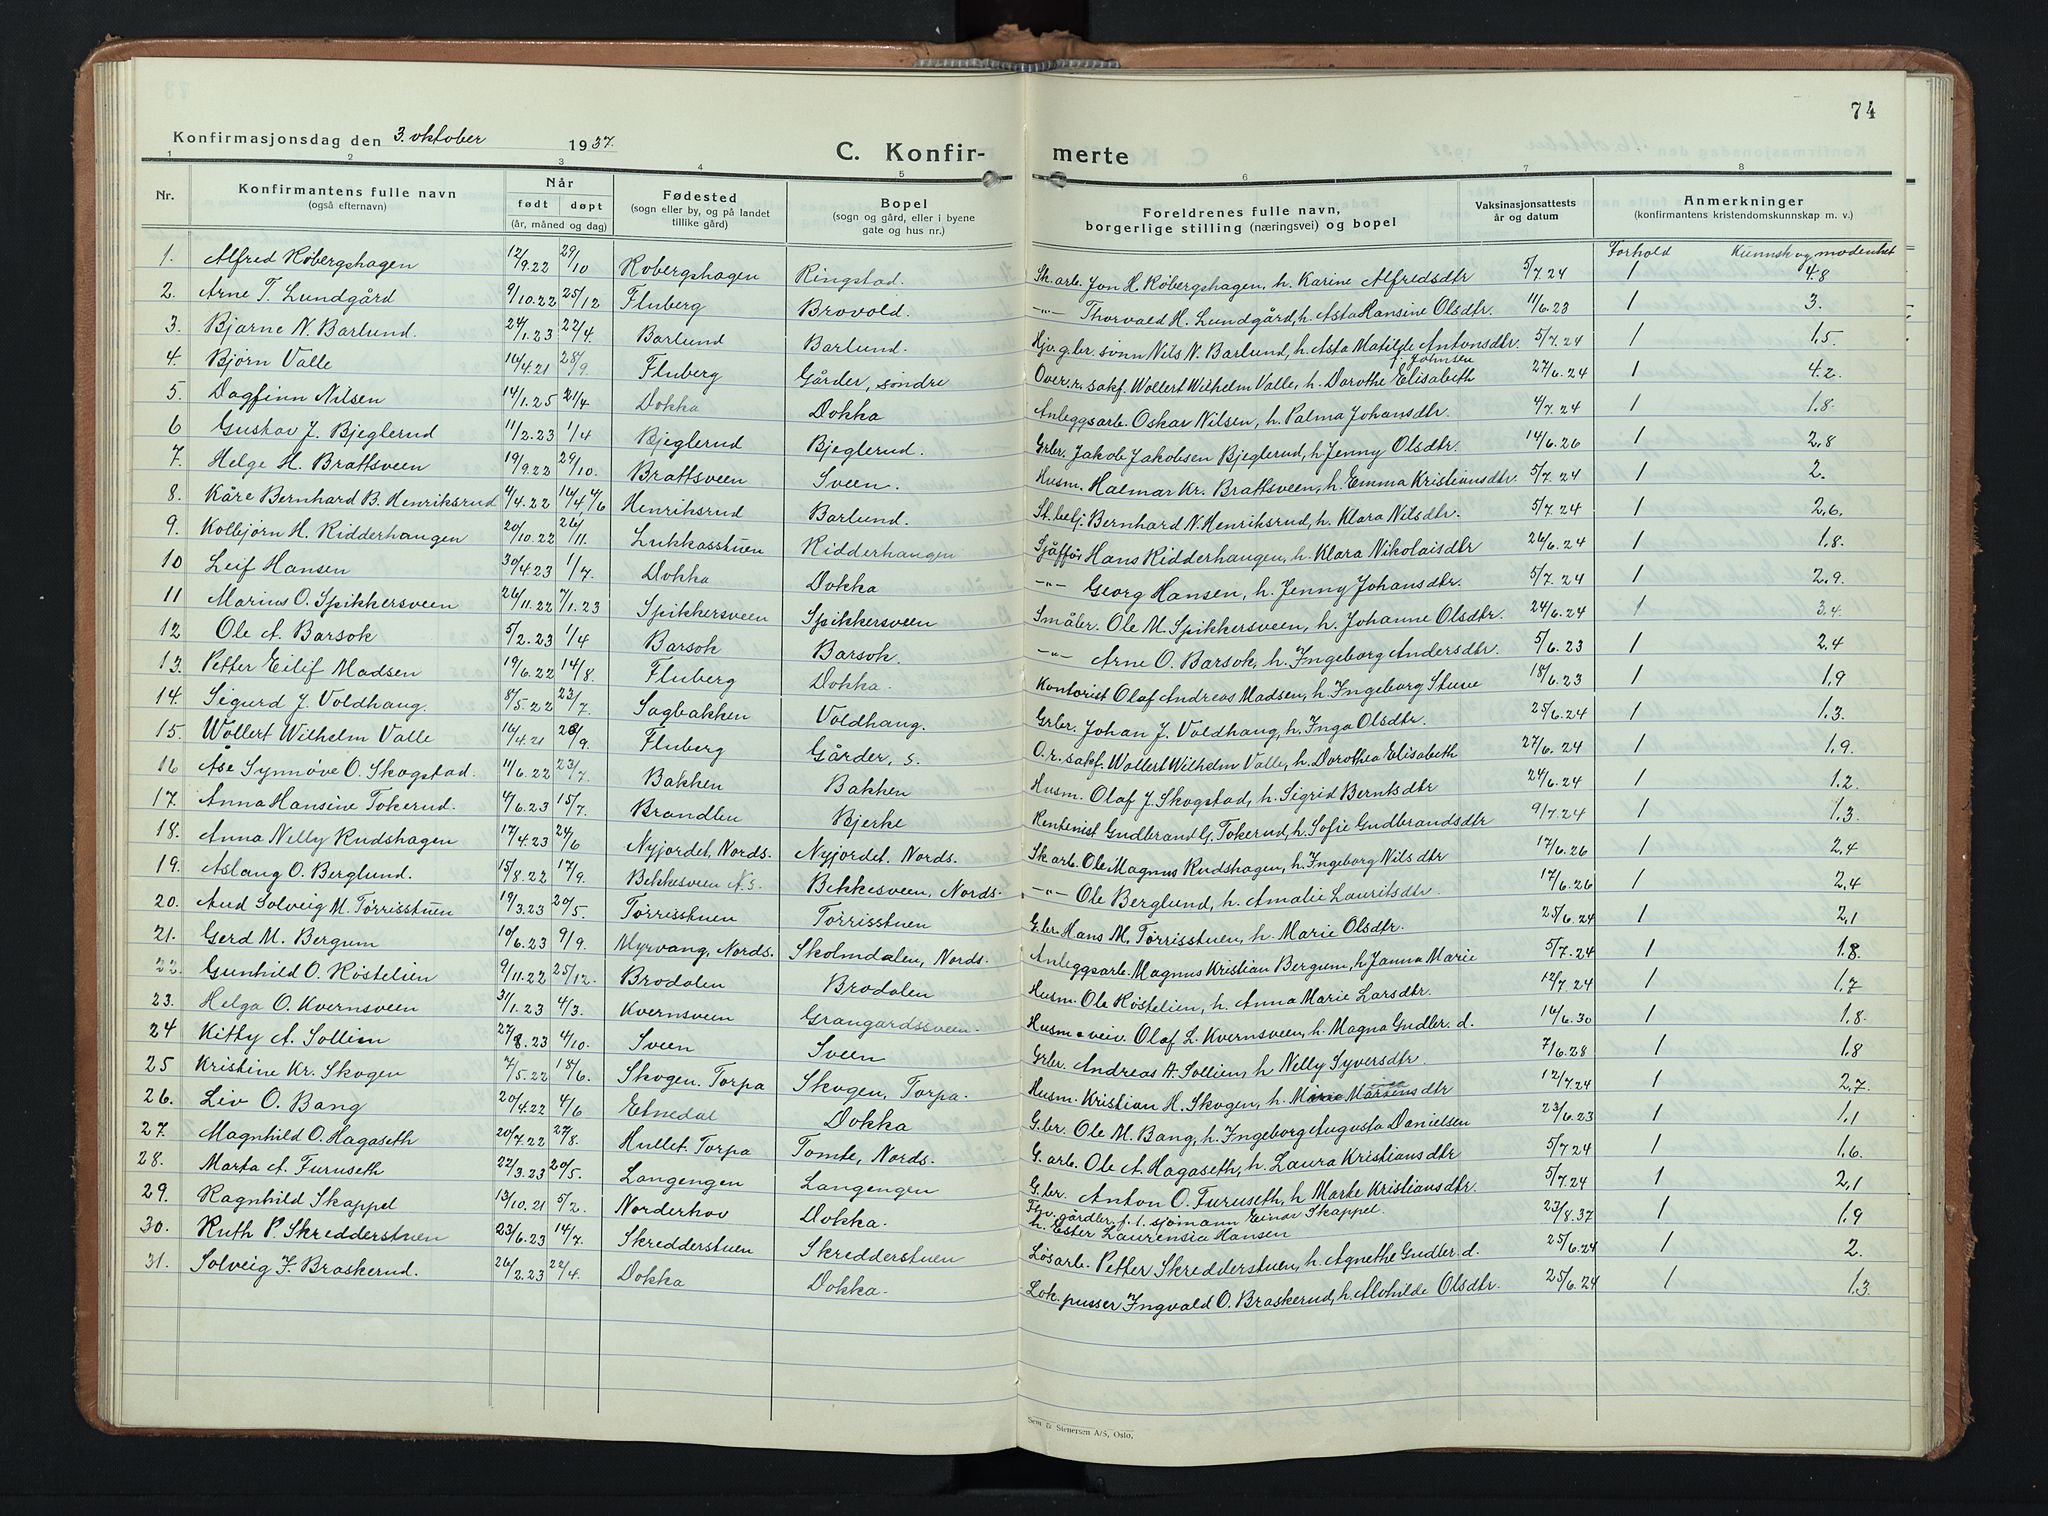 74
Konfirmasjonsdag den 3. oktober 1937.
C. Konfir- merte
1 2 3 4 5 6 7 8
Nr. Konfirmantens fulle navn (også efternavn) Når født døpt (år, måned og dag) Fødested (sogn eller by, og på landet tillike gård) Bopel (sogn og gård, eller i byene gate og hus nr.) Foreldrenes fulle navn, borgerlige stilling (næringsvei) og bopel Vaksinasjonsattests år og datum Anmerkninger (konfirmantens kristendomskunnskap m. v.)
Forhold Kunnsk og modenhet
1. Alfred Robergshagen 12/9.22 29/10 Robergshagen Ringstad. Sk. arb. Jon H. Robergshagen, h. Karine Alfredsdtr 5/7.24 1 4.8
2. Arne T. Lundgård 9/10.22 25/12 Fluberg Brovold. -"- Thorvald H. Lundgård, h. Asta Hansine Olsdtr. 11/6.23 1 3.
3. Bjarne N. Barlund. 24/1.23 22/4. Barlund Barlund. Hjv. g.br. sønn Nils N. Barlund, h. Asta Matilde Antonsdtr. 5/7.24 1 1.5.
4. Bjørn Valle 16/4.21 28/9. Fluberg Gårder, søndre Over.r. sakf. Wollert Wilhelm Valle, h. Dorothe Elisabeth f. Johnsen 27/6.24 1 4.2.
5. Dagfinn Nilsen 14/1.25 21/4 Dokka Dokka Anleggsarb. Oskar Nilsen, h. Palma Johansdtr. 4/7.24 1 1.8.
6 Gustav J. Bjeglerud 11/2.23 1/4 Bjeglerud Bjeglerud. Grbr. Jakob Jakobsen Bjeglerud, h Jenny Olsdtr. 14/6.26 1 2.8
7. Helge H. Brattsveen 19/9.22 29/10. Brattsveen Sveen. Husm. Halmar Kr. Brattsveen, h. Emma Kristiansdtr. 5/7.24 1 2.
8. Kåre Bernhard B. Henriksrud 4/4.22 16/4 4/6 Henriksrud Barlund. St. betj. Bernhard N. Henriksrud, h. Klara Nilsdtr. 5/7.24 1 2.6.
9. Kolbjørn H. Ridderhangen 20/10.22 26/11. Lukkasstuen Ridderhangen Sjåffør Hans Ridderhangen, h. Klara Nikolaisdtr 26/6.24 1 1.8.
10 Leif Hansen 30/4.23 1/7. Dokka Dokka -"- Georg Hansen, h. Jenny Johansdtr. 5/7.24 1 2.9.
11 Marius O. Spikkersveen 26/11.22 7/1.23 Spikkersveen Spikkersveen Småbr. Ole M. Spikkersveen, h. Johanne Olsdtr. 24/6.24 1 3.4.
12 Ole A. Barsok 5/2.23 1/4 Barsok Barsok. -"- Arne O. Barsok, h. Ingeborg Andersdtr. 5/6.23 1 2.4
13. Petter Eilif Madsen 19/6.22 14/8. Fluberg Dokka. Kontorist Olaf Andreas Madsen, h. Ingeborg Stuve 18/6.23 1 1.9
14. Sigurd J. Voldhang. 8/5.22 23/7. Sagbakken Voldhang. Grbr. Johan J. Voldhang, h. Inga Olsdtr. 25/6.24 1 1.3.
15. Wollert Wilhelm Valle 16/4.21 28/9. Fluberg Gårder, s. O.r. sakf. Wollert Wilhelm Valle, h. Dorothea Elisabeth 27/6.24 1 1.9.
16 Åse Synnøve O. Skogstad. 11/6.22 23/7. Bakken Bakken Husm. Olaf J. Skogstad, h. Sigrid Berntsdtr 24/6.24 1 1.2.
17. Anna Hansine Tokerud. 4/6.23 15/7. Brandlien Bjerke Rentenist Gudbrand G. Tokerud, h. Sofie Gudbrandsdtr 9/7.24 1 1.3.
18. Anna Nelly Rudshagen 17/4.23 24/6 Nyjordet, Nords. Nyjordet. Nords. Sk. arb. Ole Magnus Rudshagen, h. Ingeborg Nilsdtr 17/6.26 1 2.4
19. Aslaug O. Berglund. 15/8.22 17/9. Bekkesveen N.s. Bekkesveen, Nords. -"- Ole Berglund, h. Amalie Lauritsdtr. 17/6.26 1 2.4
20. Aud Solveig M. Tørrisstuen 19/3.23 20/5. Tørrisstuen Tørrisstuen G.br. Hans M. Tørrisstuen, h. Marie Olsdtr. 25/6.24 1 2,1
21. Gerd M. Bergum 10/6.23 9/9. Myrvang, Nords. Skolmdalen, Nords. Anleggsarb. Magnus Kristian Bergum, h Janna Marie 5/7.24 1 1.8.
22. Gunhild O. Røstelien 9/11.22 25/12. Brodalen Brodalen Husm. Ole Røstelien, h. Anna Marie Larsdtr. 12/7.24 1 1.7
23. Helga O. Kvernsveen 31/1.23 4/3. Kvernsveen Grangardssveen. Husm. veiv. Olaf L. Kvernsveen, h. Magna Gudbr. d. 16/6.30 1 1.8.
24 Kitty A. Sollien 27/8.23 4/10. Sveen Sveen Grbr. Andreas A. Sollien, h Nelly Syversdtr 7/6.28 1 1.8
25 Kristine Kr. Skogen 7/5.22 18/6. Skogen, Torpa Skogen, Torpa. Husm. Kristian H. Skogen, h. Marie Martinsdtr 12/7.24 1 2,7.
26. Liv O. Bang 20/4.22 4/6 Etnedal Dokka G.br. Ole M. Bang, h. Ingeborg Augusta Danielsen 23/6.23 1 1.1
27. Magnhild O. Hagaseth 20/7.22 27/8. Hullet. Torpa Tomte, Nords. G.arb. Ole A. Hagaseth, h. Laura Kristiansdtr 5/7.24 1 1,6.
28. Marta A. Furuseth 22/3.23 20/5. Langengen Langengen G.br. Anton O. Furuseth, h Marte Kristiansdtr. 5/7.24 1 2,1
29. Ragnhild Skappel 13/10.21 5/2. Norderhov Dokka. gårdbr. f.t. sjømann Einar Skappel. h. Ester Laurensia Hansen 23/8.37 1 1.9
30. Ruth P. Skredderstuen 23/6.23 14/7. Skredderstuen Skredderstuen Løsarb. Petter Skredderstuen, h. Agnethe Gudbr. d. 25/6.24 1 2.
31. Solveig I. Braskerud. 26/2.23 22/4. Dokka Dokka. Lok. pusser Ingvald O. Braskerud, h. Alvhilde Olsdtr. 25/6.24 1 1.3.
Sem & Stenersen A/S, Oslo.